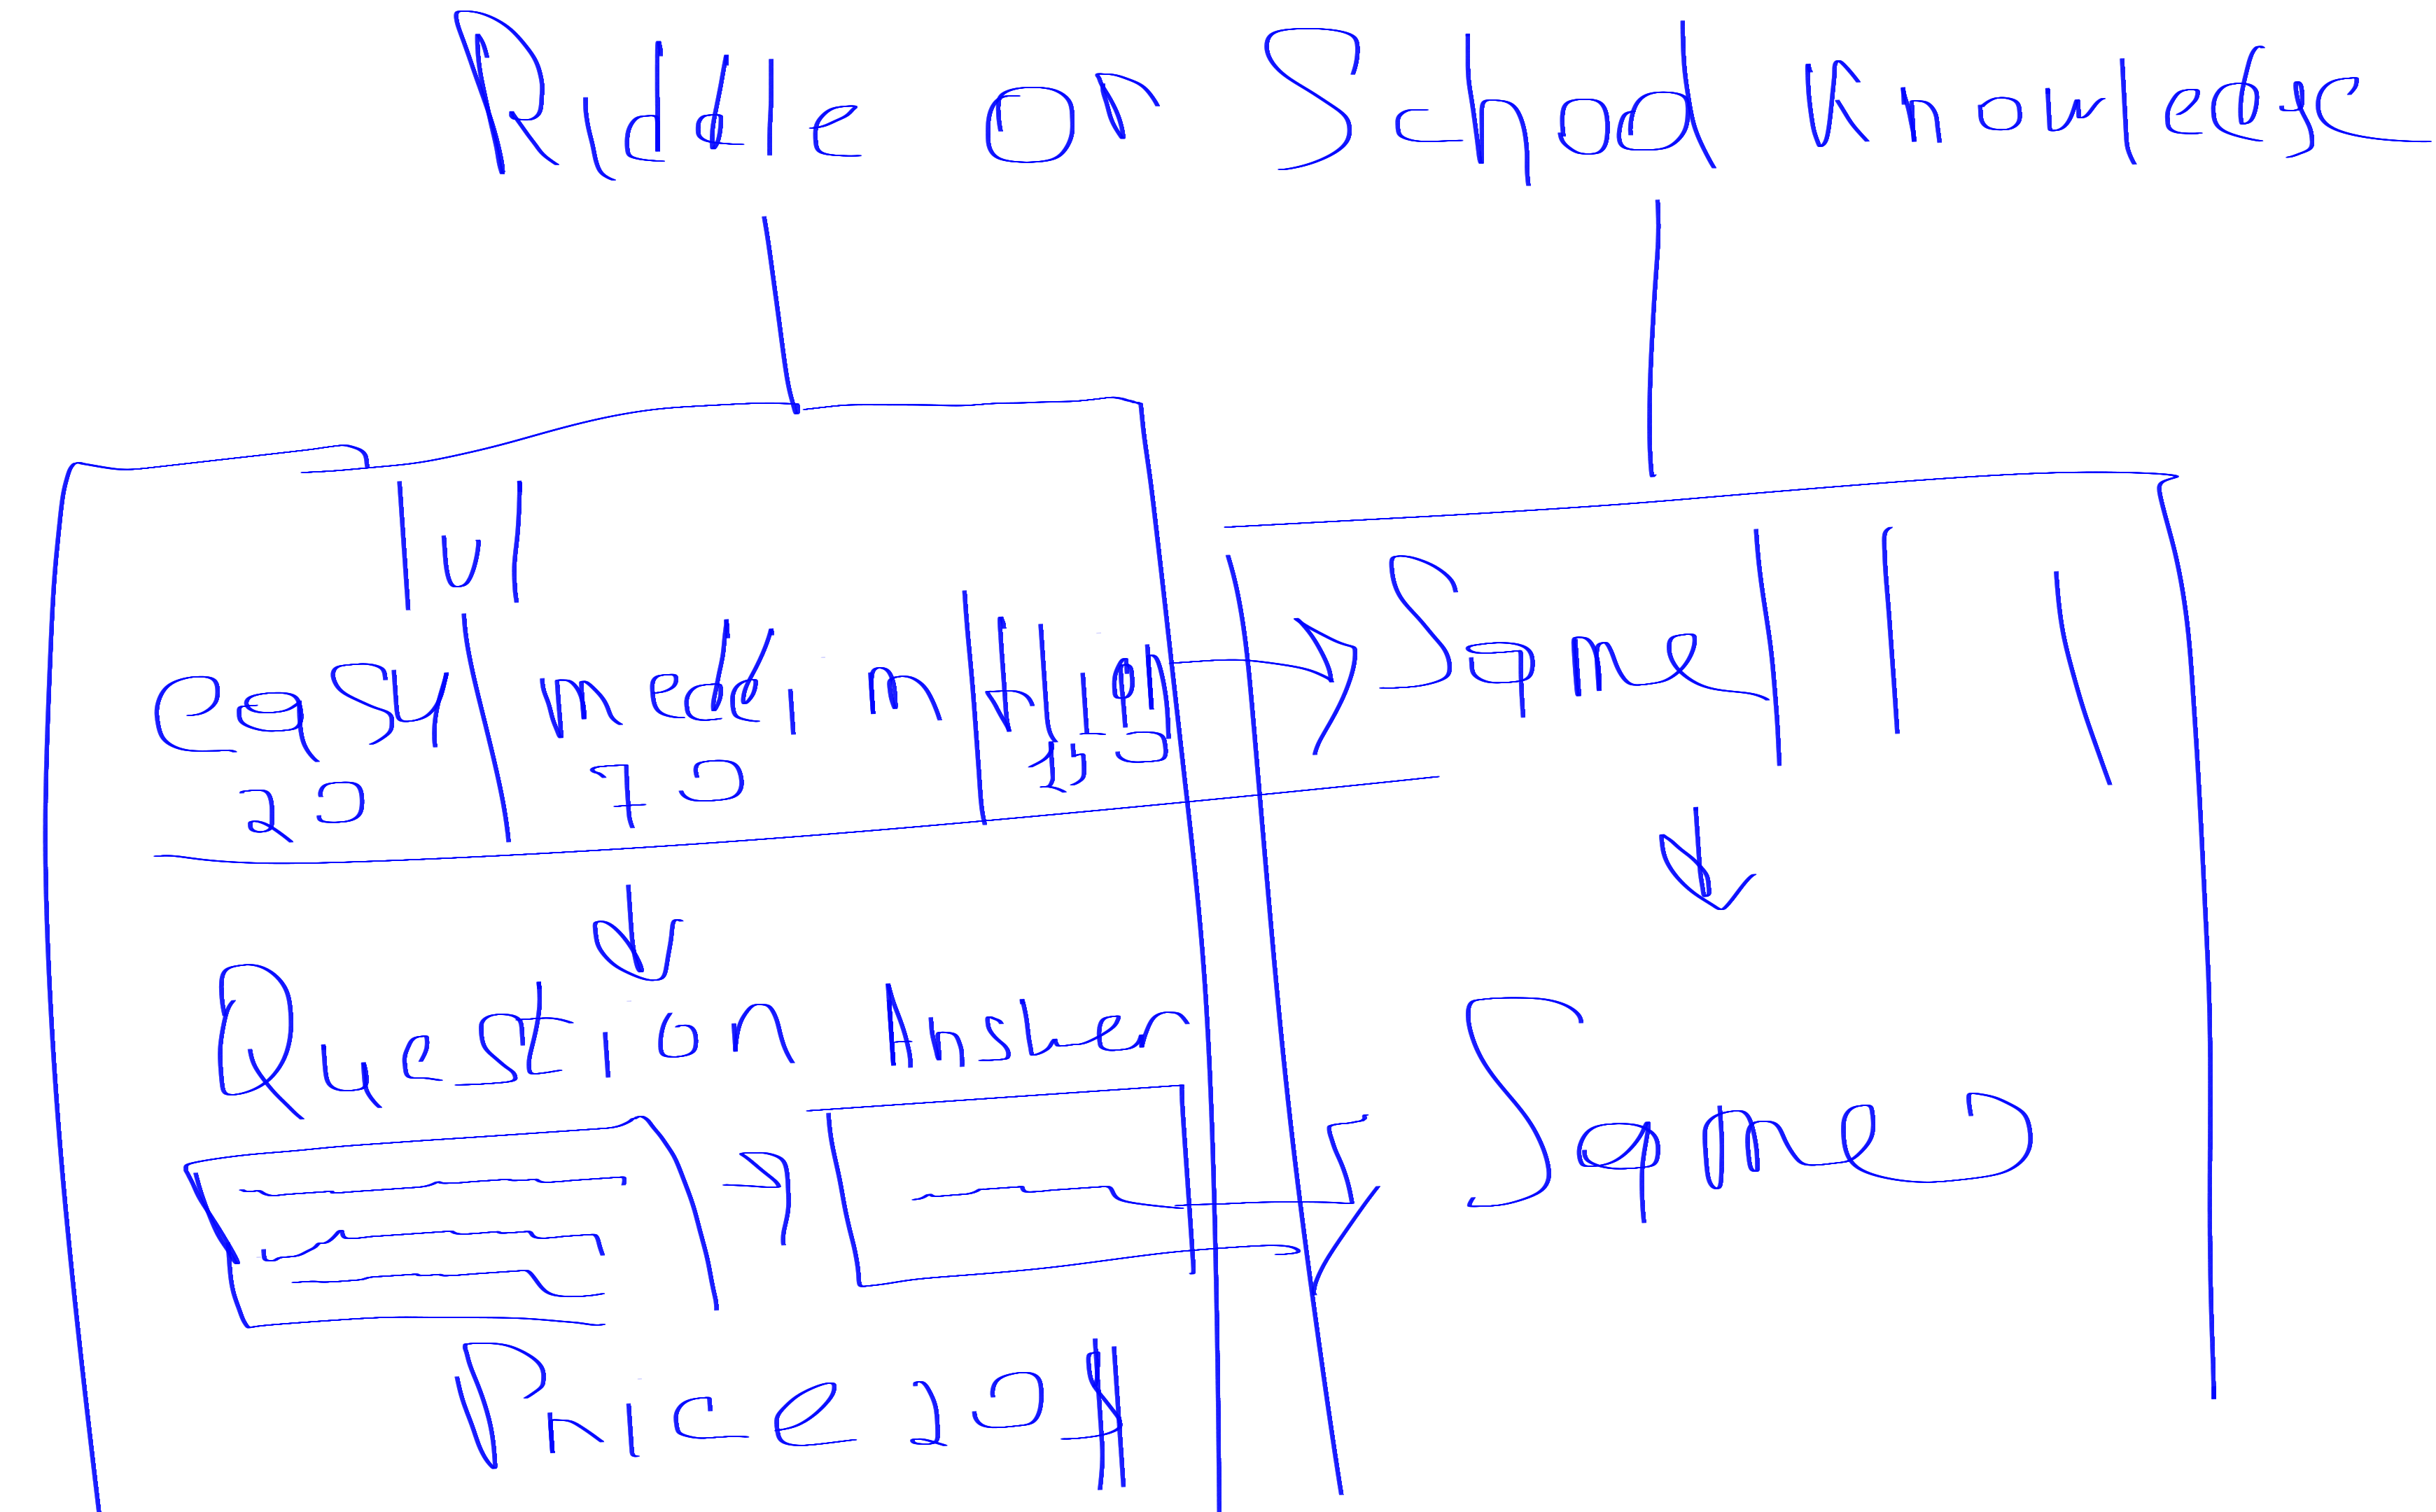 Riddle or School knowledge
lvl
easy medium High Same
20 70 150
Question Answer Same
Price 20$